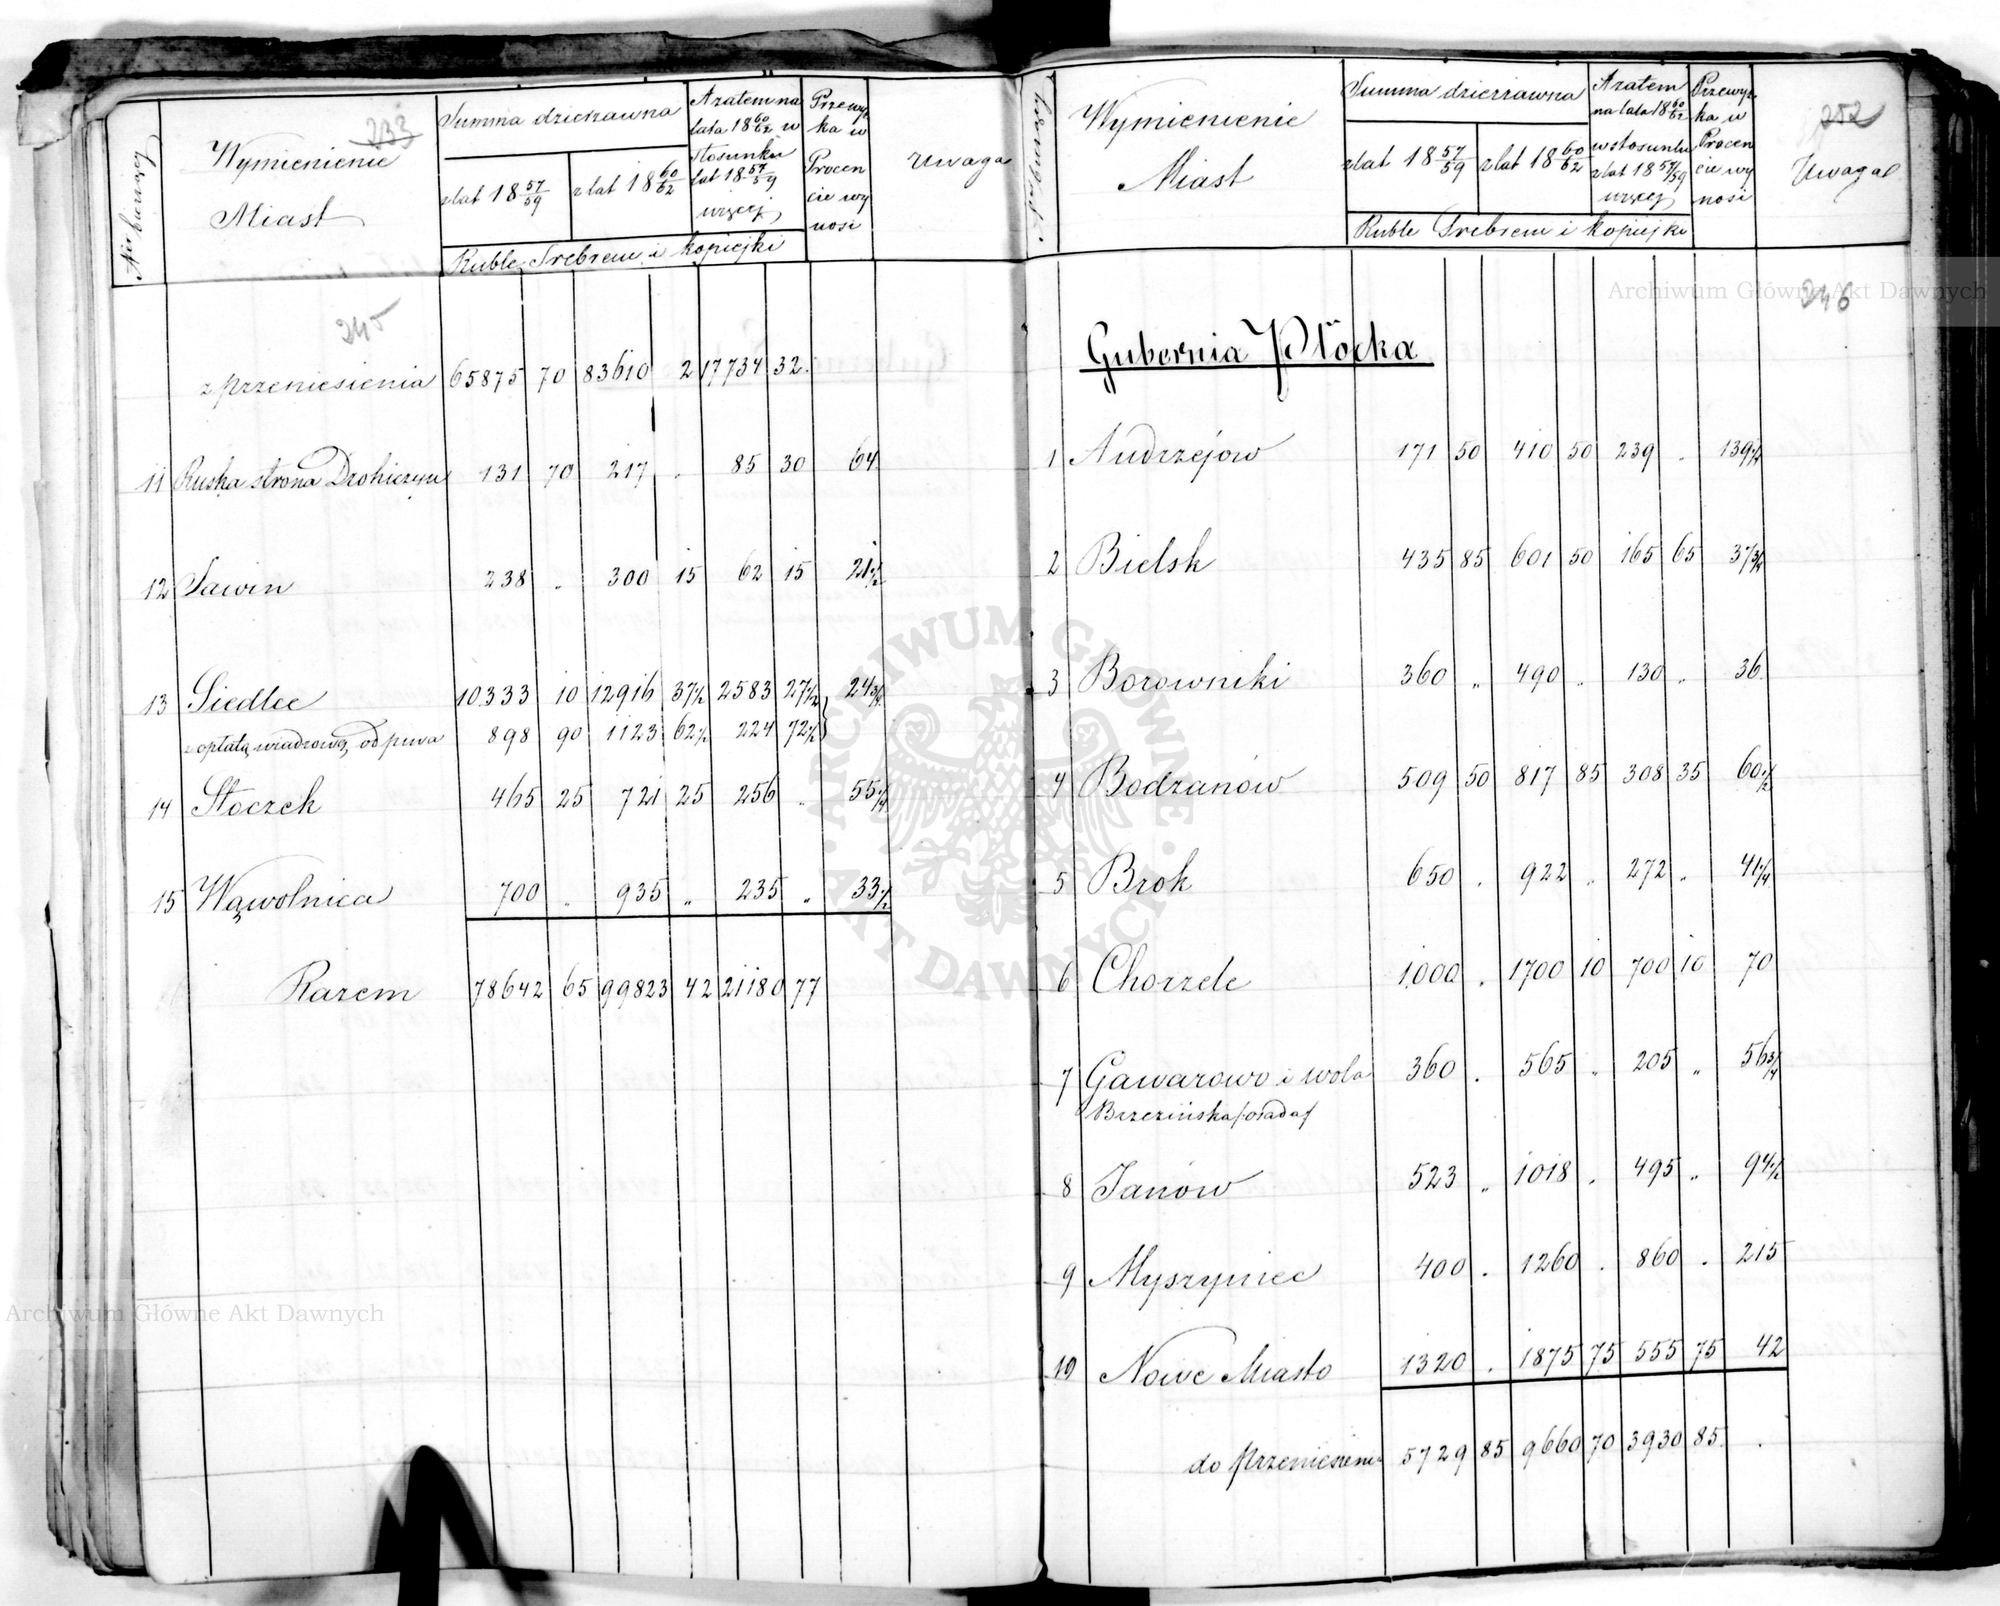 233
№ bieżący
Wymienienie
Miast
Summa dzierżawna
z lat 18 57/59
z lat 18 60/62
A zatem na
lata 18 60/62 w
stosunku
lat 18 57/59
więcej
Przewyż
ka w
Procen
cie wy
nosi
Uwaga
Ruble Srebrem i kopiejki
245
z przeniesienia 65875 70 83610 2 17734 32
11 Ruska strona Drohiczyna 131 70 217 . 85 30 64
12 Sawin 238 . 300 15 62 15 21 1/2
13 Siedlce 10333 10 12916 37 1/2 2583 27 1/2 24 3/4
z opłatą wiadrową od piwa 898 90 1123 62 1/2 224 72 1/2
14 Stoczek 465 25 721 25 256 . 55 1/4
15 Wąwolnica 700 . 935 „ 235 „ 33 1/2
Razem 78642 65 99823 42 21180 77
252
Wymienienie
Miast
Summa dzierzawna
z lat 18 57/59
z lat 18 60/62
A zatem
na lata 18 60/62
w stosunku
z lat 18 57/59
więcej
Przewyż
ka w
Procen
cie wy
nosi
Uwaga
Ruble Srebrem i kopiejki
246
Gubernia Płocka
1 Andrzejów 171 50 410 50 239 . 139 1/4
2 Bielsk 435 85 601 50 165 65 37 3/4
3 Borowniki 360 „ 490 „ 130 „ 36
4 Bodzanów 509 50 817 85 308 35 60 1/2
5 Brok 650 . 922 „ 272 „ 41 1/4
6 Chorzele 1000 . 1700 10 700 10 70
7 Gawarowo i wola 360 . 565 „ 205 „ 56 3/4
Brzezińska /:osada/
8 Janów 523 „ 1018 . 495 „ 94 1/2
9 Myszyniec 400 . 1260 . 860 . 215
10 Nowe Miasto 1320 . 1875 75 555 75 42
do przeniesienia 5729 85 9660 70 3930 85 .
Archiwum Główne Akt Dawnych
ARCHIWUM GŁÓWNE
AKT DAWNYCH
Archiwum Główne Akt Dawnych